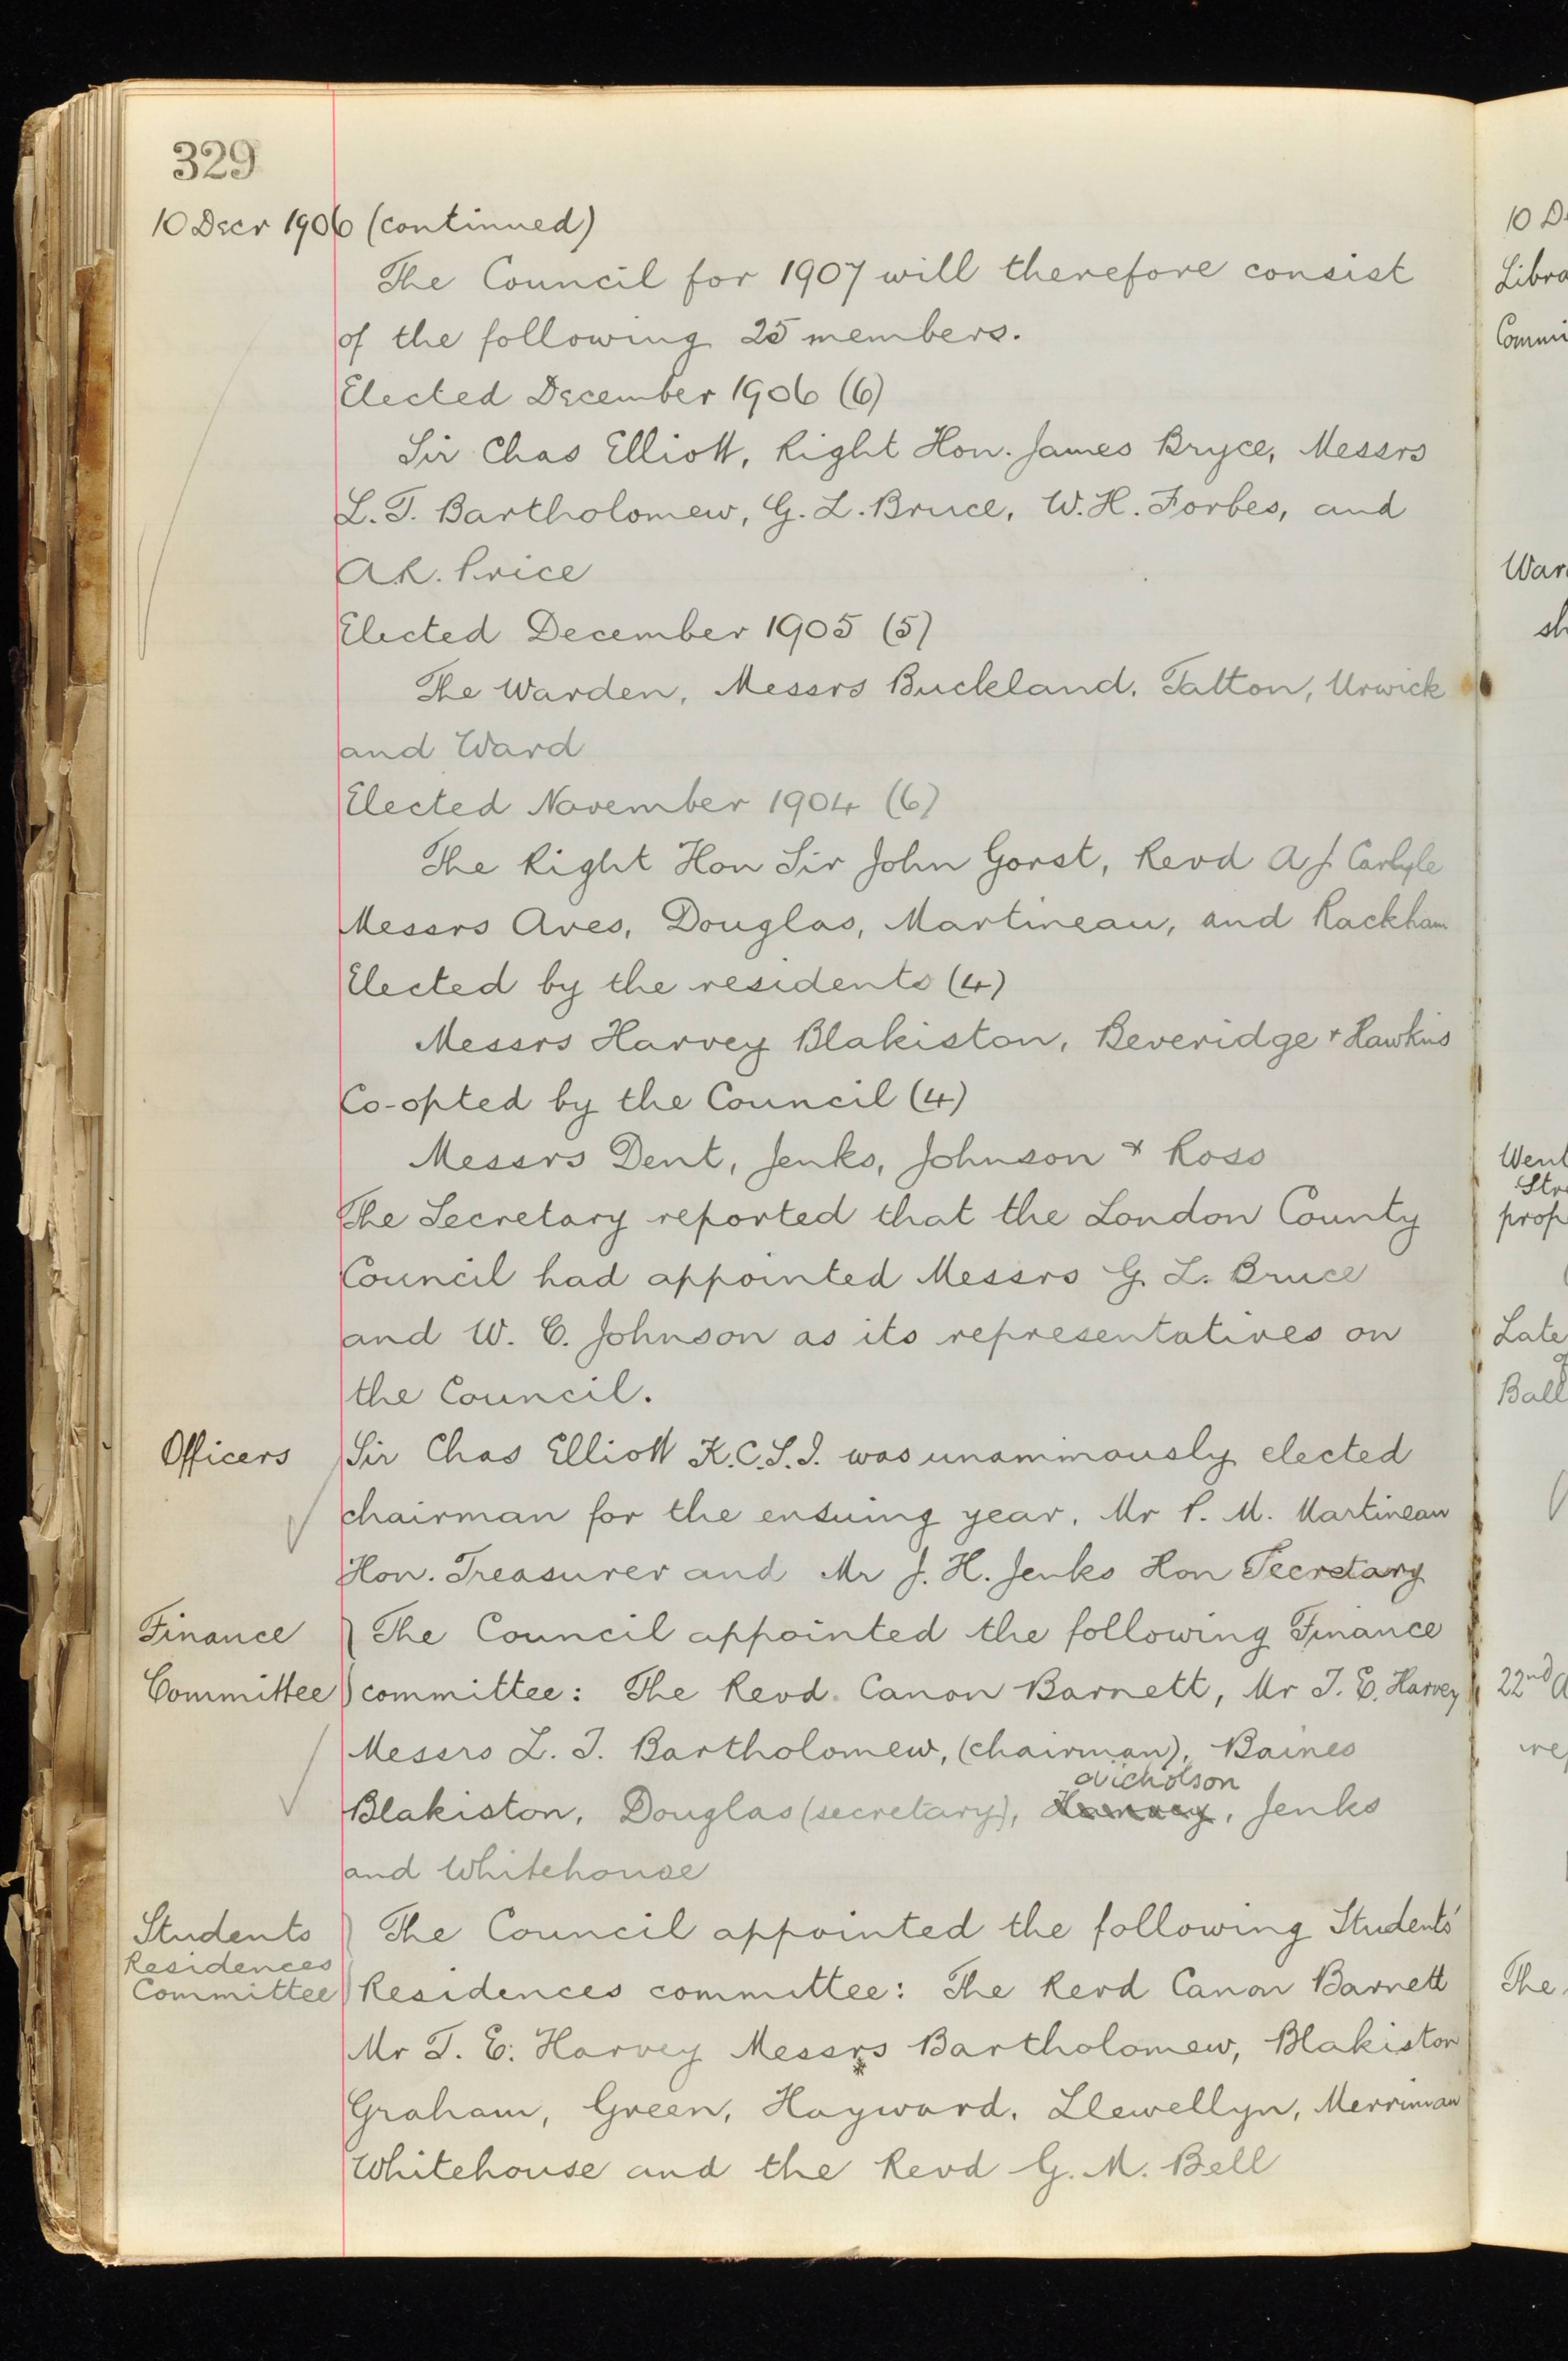 329
10 Decr 1906 (continued)
The Council for 1907 will therefore consist
of the following 25 members.
Elected December 1906 (6)
Sir Chas Elliott, Right Hon. James Bryce, Messrs
L. T. Bartholomew, G. L. Bruce, W. H. Forbes, and
A.R. Price
Elected December 1905 (5)
The Warden, Messrs Buckland, Tatton, Urwick
and Ward
Elected November 1904 (6)
The Right Hon Sir John Gorst, Revd A J. Carlyle
Messrs Aves, Douglas, Martineau, and Rackham
Elected by the residents (4)
Messrs Harvey Blakiston, Beveridge + Hawkins
Co-opted by the Council (4)
Messrs Dent, Jenks, Johnson & Ross
The Secretary reported that the London County
Council had appointed Messrs G. L. Bruce
and W. C. Johnson as its representatives on
the Council.
Officers Sir Chas Elliott K.C.S.I. was unammously elected
chairman for the ensuing year, Mr P. M. Martineau
Hon. Treasurer and Mr J. H. Jenks Hon Secretary
Finance The Council appointed the following Finance
Committee committee: The Revd. Canon Barnett, Mr T. E. Harvey
Messrs L. T. Bartholomew, (chairman), Baines
Nicholson
Blakiston, Douglas (secretary), , Jenks
and Whitehouse
Students The Council appointed the following Students'
Residences
Committee Residences committee: The Revd Canon Barnett
Mr T. E. Harvey Messrs Bartholomew, Blakiston
Graham, Green, Hayward, Llewellyn, Merriman
Whitehouse and the Revd G. M. Bell
10 D
Libra
Commi
War
sh
Went
Stre
prop
Late
Ball
22nd
rep
The